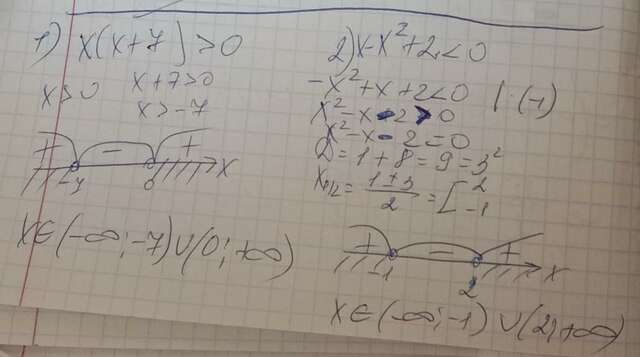 1) x(x+7)>0
x>0 x+7>0
x>-7
+ - + x
-7 0
x∈(-∞;-7)∪(0;+∞)
2) x-x²+2<0
-x²+x+2<0 |·(-1)
x²-x-2>0
x²-x-2=0
D=1+8=9=3²
x₁/₂=(1±3)/2=[2 -1
+ - + x
-1 2
x∈(-∞;-1)∪(2;+∞)